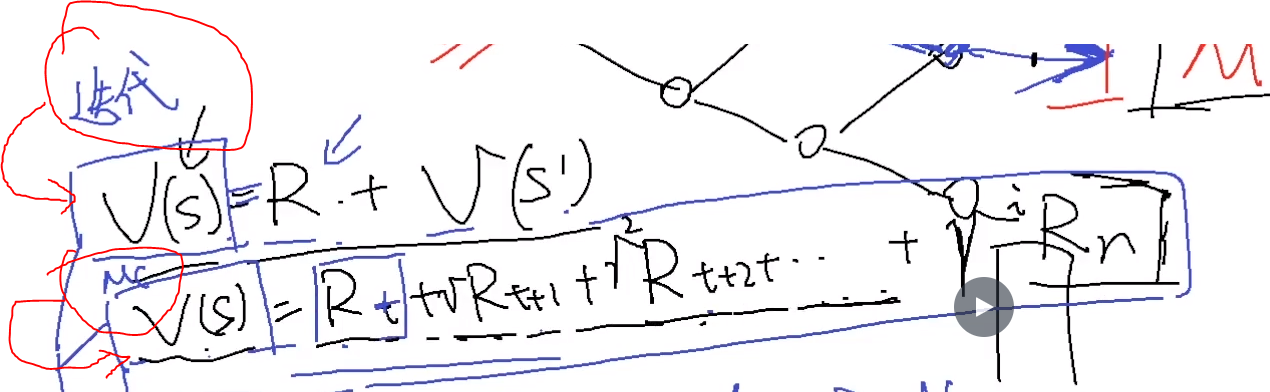 迭代
V(s) = R + V(s')
MC
V(s) = R_t + γR_{t+1} + γ²R_{t+2} + ... + γ^i R_n